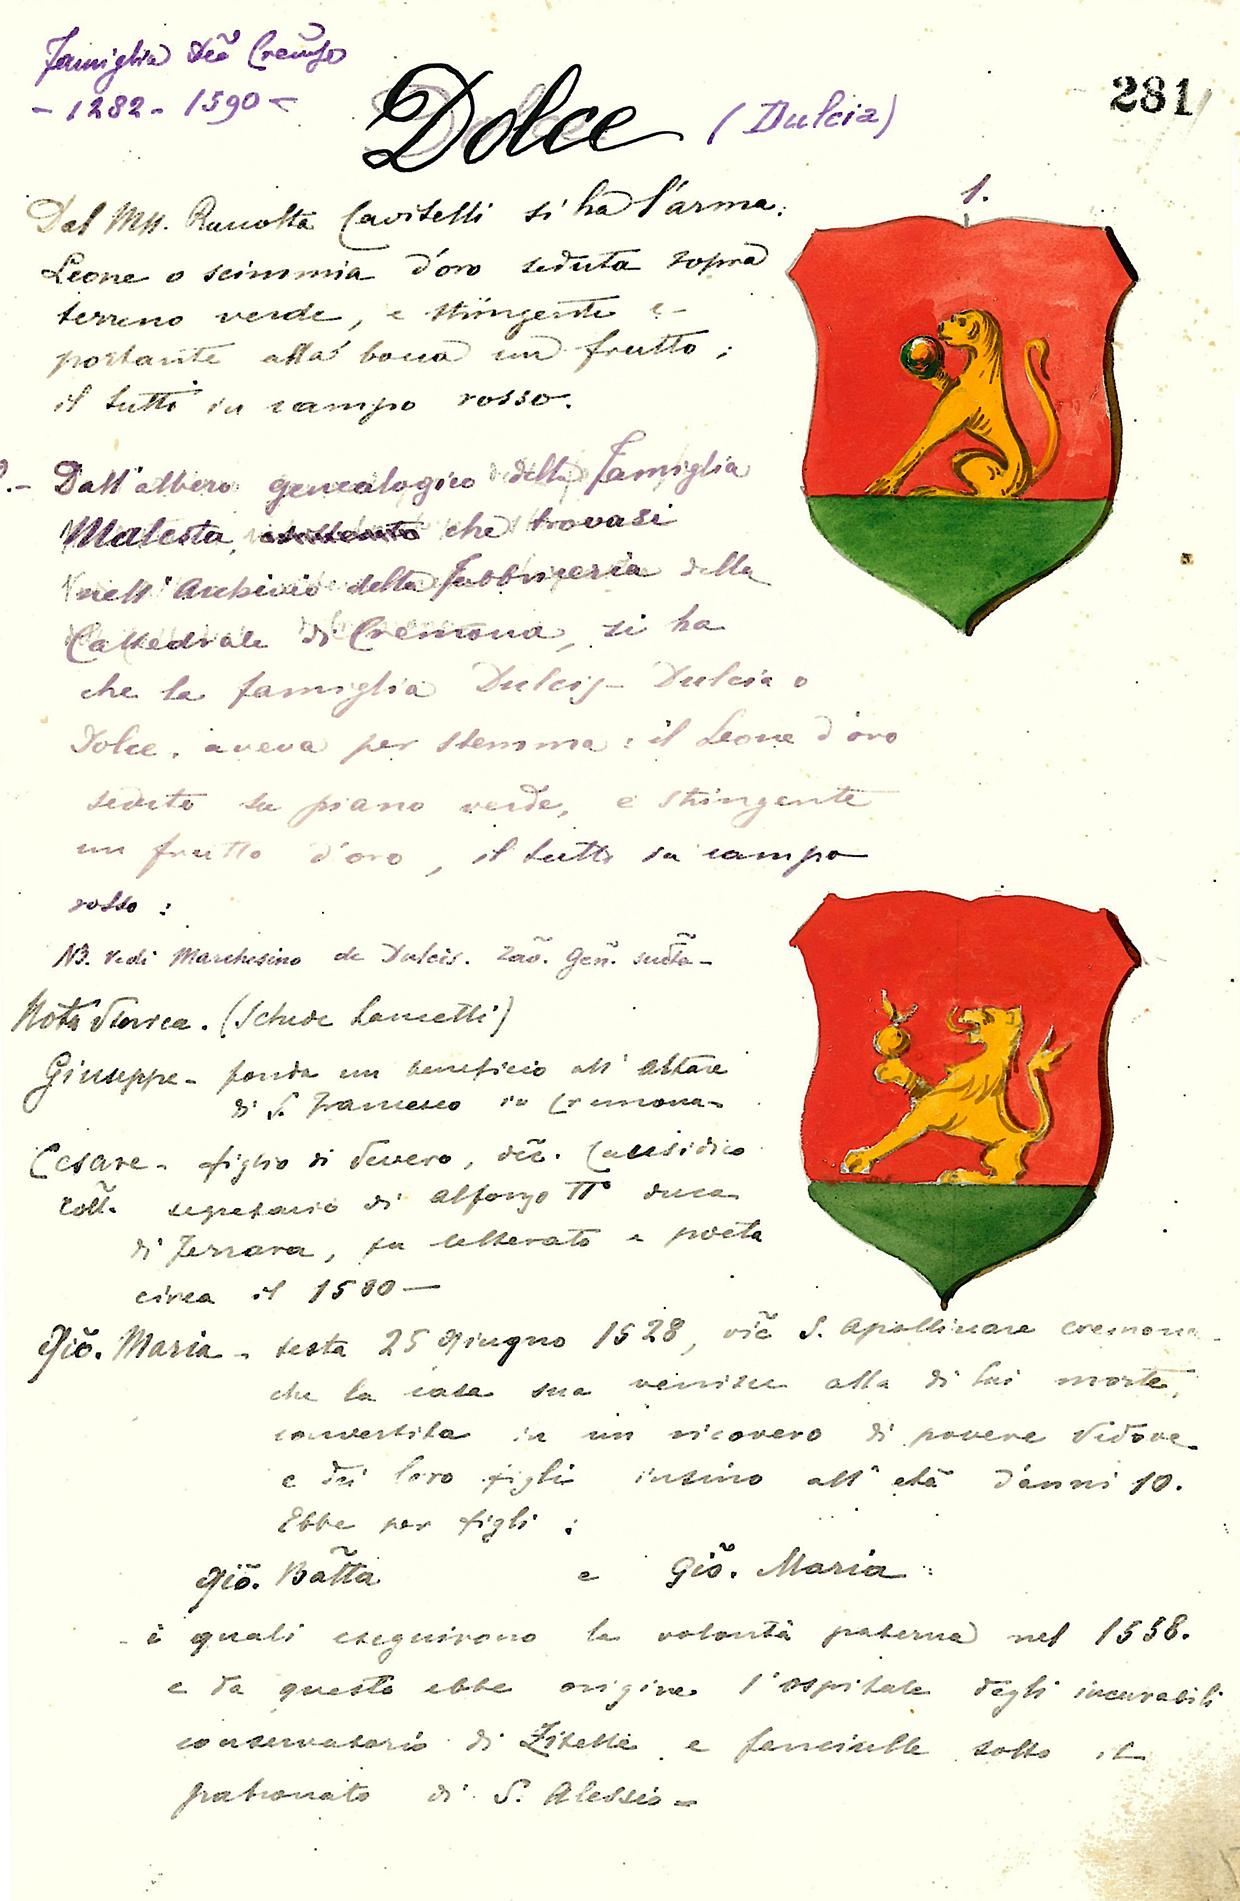 Famiglia Dec̃ Crem̃se
- 1282 - 1590 -
Dolce (Dulcia)
281
1.
Dal Mss. Raccolta Cavitelli si ha l'arma:
Leone o scimmia d'oro seduta sopra
terreno verde, e stringente e
portante alla bocca un frutto;
il tutto in campo rosso.
2.- Dall'albero genealogico della Famiglia
Malesta, che trovasi
nell'Archivio della Fabbriceria della
Cattedrale di Cremona, si ha
che la famiglia Dulcis - Dulcia o
Dolce, aveva per stemma: il Leone d'oro
seduto su piano verde, e stringente
un frutto d'oro, il tutto su campo
rosso:
NB. Vedi Marchesino de Dulcis. Gen.
Nota Storica. (Schede Lancetti)
Giuseppe - fonda un beneficio all'altare
di S. Francesco in Cremona -
Cesare - figlio di Severo, dec̃. Causidico
Coll. segretario di Alfonso II° duca
di Ferrara, fu letterato e poeta
circa il 1580 -
Giõ. Maria - testa 25 Giugno 1528, vic̃ S. Apollinare Cremona -
che la casa sua venisse alla di lui morte,
convertita in un ricovero di povere vedove
e dei loro figli insino all'età d'anni 10.
Ebbe per figli:
Giõ. Batt̃a e Giõ. Maria:
i quali eseguirono la volontà paterna nel 1558.
e da questo ebbe origine l'ospitale degli incurabili
conservatorio di Zitelle e fanciulle sotto il
patronato di S. Alessio -